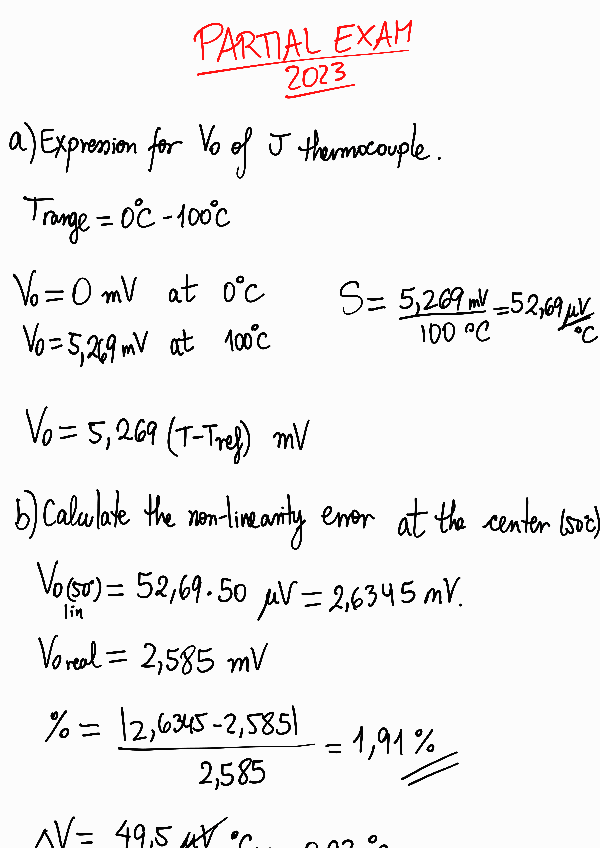 PARTIAL EXAM
2023
a) Expression for Vo of J thermocouple.
Trange = 0°C - 100°C
Vo = 0 mV at 0°C
Vo = 5,269 mV at 100°C
S = 5,269 mV / 100 °C = 52,69 μV/°C
Vo = 5,269 (T-Tref) mV
b) Calculate the non-linearity error at the center (50°C)
Vo(50) lin = 52,69 · 50 μV = 2,6345 mV.
Vo real = 2,585 mV
% = |2,6345 - 2,585| / 2,585 = 1,91 %
ΔV = 49,5 μV °C